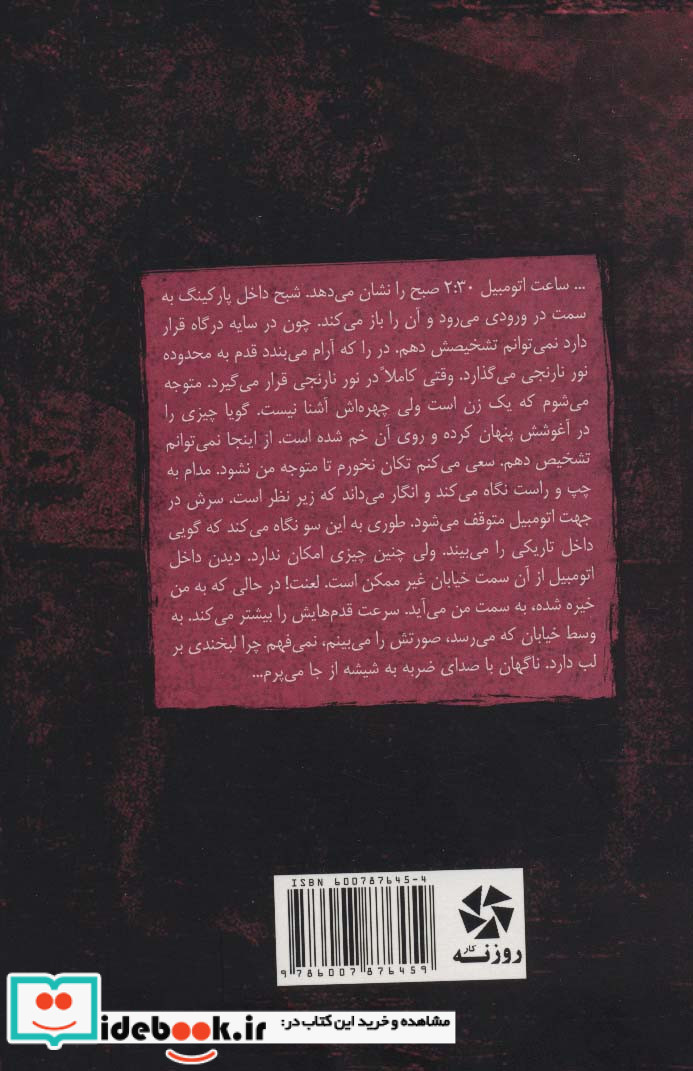 ... ساعت اتومبیل ۲:۳۰ صبح را نشان می‌دهد. شبح داخل پارکینگ به
سمت در ورودی می‌رود و آن را باز می‌کند. چون در سایه درگاه قرار
دارد نمی‌توانم تشخیصش دهم. در را که آرام می‌بندد قدم به محدوده
نور نارنجی می‌گذارد. وقتی کاملاً در نور نارنجی قرار می‌گیرد. متوجه
می‌شوم که یک زن است ولی چهره‌اش آشنا نیست. گویا چیزی را
در آغوشش پنهان کرده و روی آن خم شده است. از اینجا نمی‌توانم
تشخیص دهم. سعی می‌کنم تکان نخورم تا متوجه من نشود. مدام به
چپ و راست نگاه می‌کند و انگار می‌داند که زیر نظر است. سرش در
جهت اتومبیل متوقف می‌شود. طوری به این سو نگاه می‌کند که گویی
داخل تاریکی را می‌بیند. ولی چنین چیزی امکان ندارد. دیدن داخل
اتومبیل از آن سمت خیابان غیر ممکن است. لعنت! در حالی که به من
خیره شده، به سمت من می‌آید. سرعت قدم‌هایش را بیشتر می‌کند. به
وسط خیابان که می‌رسد، صورتش را می‌بینم، نمی‌فهم چرا لبخندی بر
لب دارد. ناگهان با صدای ضربه به شیشه از جا می‌پرم...
ISBN 600787645-4
9 786007 876459
کار
روزنه
مشاهده و خرید این کتاب در:
idebook.ir